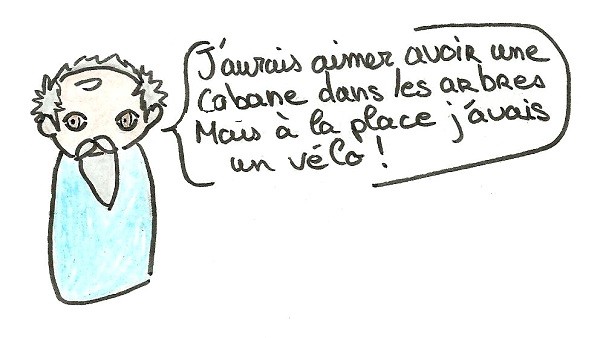 J'aurais aimer avoir une
cabane dans les arbres
Mais à la place j'avais
un vélo !